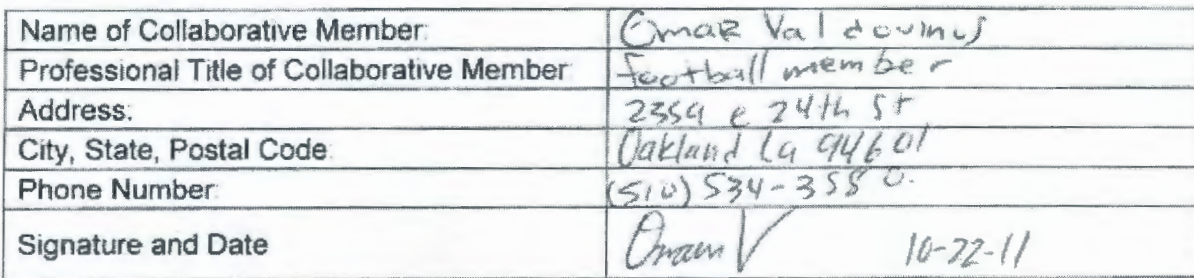 Name of Collaborative Member: Omar Valdovinos
Professional Title of Collaborative Member: football member
Address: 2359 e 24th St
City, State, Postal Code: Oakland Ca 94601
Phone Number: (510) 534-3550.
Signature and Date Omar V 10-22-11